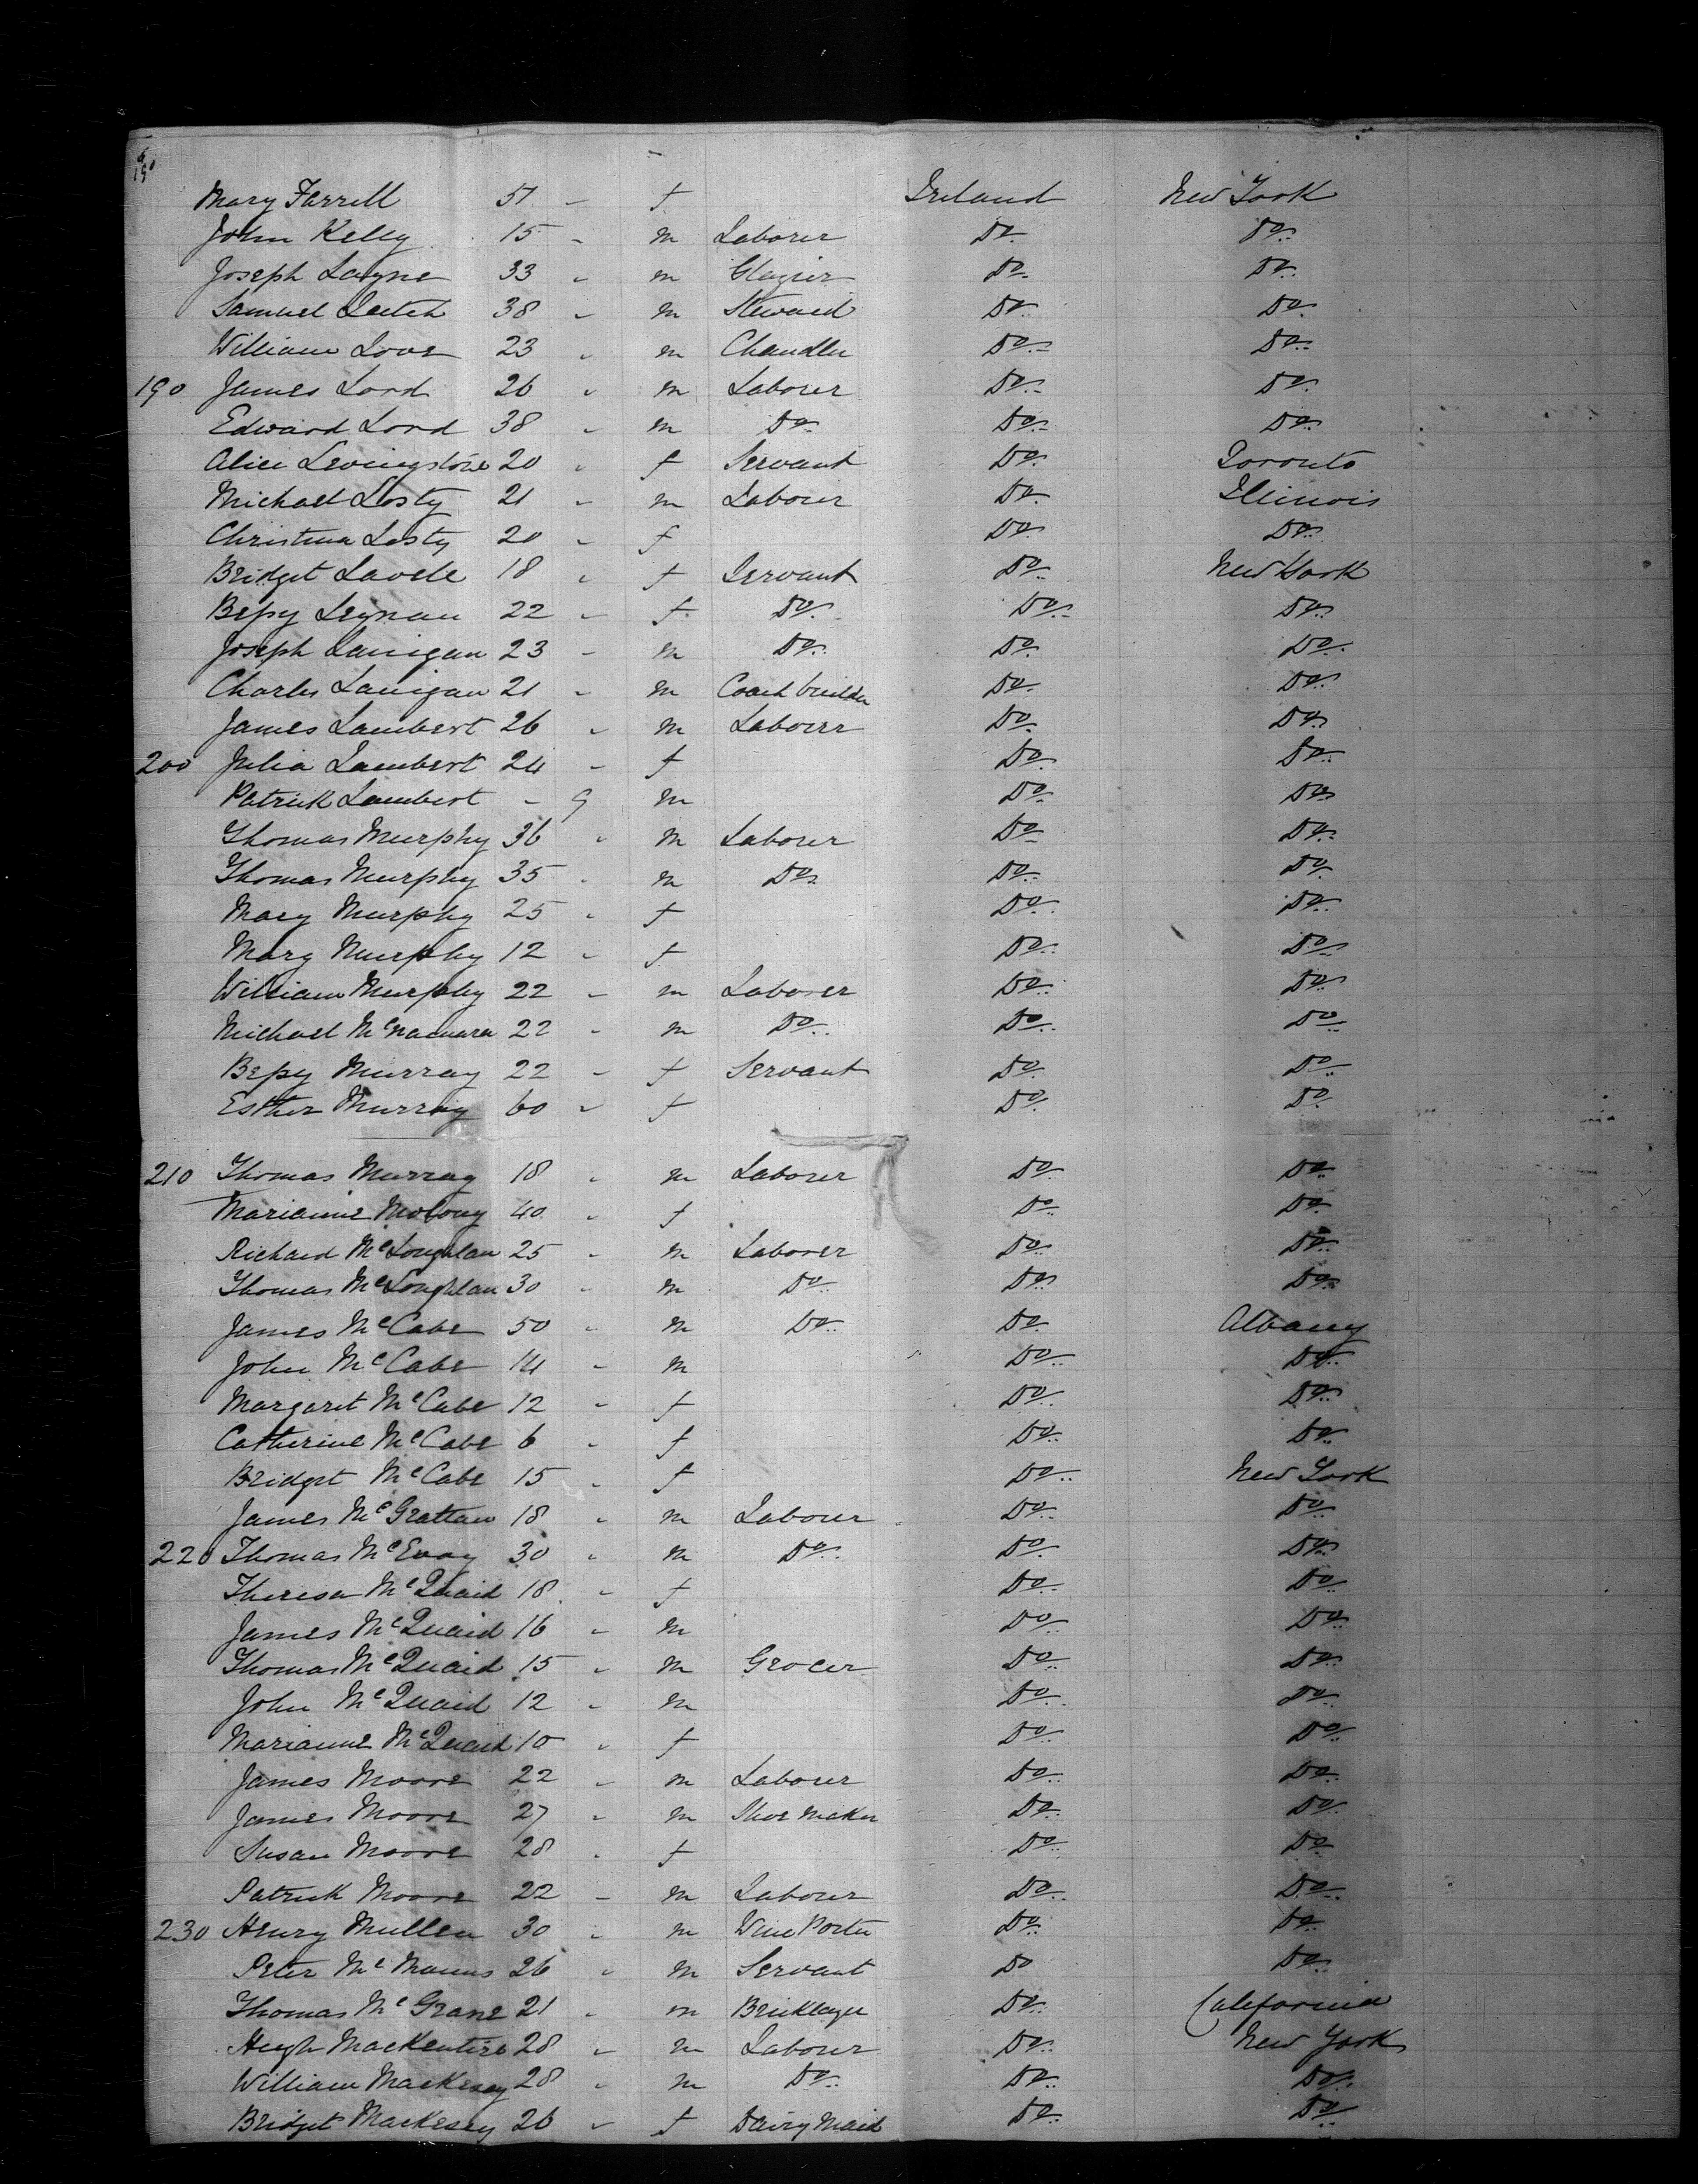 Mary Farrell 51 - f Ireland New York
John Kelly 15 - m Laborer Do Do
Joseph Layne 33 - m Glazier Do Do
Samuel Leitch 38 - m Steward Do Do
William Love 23 - m Chandler Do Do
190 James Lord 26 - m Laborer Do Do
Edward Lord 38 - m Do Do Do
Alice Levingstone 20 - f Servant Do Toronto
Michael Losty 21 - m Laborer Do Illinois
Christina Losty 20 - f Do Do
Bridget Lavele 18 - f Servant Do New York
Bessy Leynan 22 - f Do Do Do
Joseph Lanigan 23 - m Do Do Do
Charles Lanigan 21 - m Coach builder Do Do
James Lambert 26 - m Laborer Do Do
200 Julia Lambert 24 - f Do Do
Patrick Lambert - 9 m Do Do
Thomas Murphy 36 - m Laborer Do Do
Thomas Murphy 35 - m Do Do Do
Mary Murphy 25 - f Do Do
Mary Murphy 12 - f Do Do
William Murphy 22 - m Laborer Do Do
Michael McNamara 22 - m Do Do Do
Bessy Murray 22 - f Servant Do Do
Esther Murray 60 - f Do Do
210 Thomas Murray 18 - m Laborer Do Do
Marianne Molony 40 - f Do Do
Richard McLoughlan 25 - m Laborer Do Do
Thomas McLoughlan 30 - m Do Do Do
James McCabe 50 - m Do Do Albany
John McCabe 14 - m Do Do
Margaret McCabe 12 - f Do Do
Catherine McCabe 6 - f Do Do
Bridget McCabe 15 - f Do New York
James McGrattan 18 - m Laborer Do Do
220 Thomas McEvoy 30 - m Do Do Do
Theresa McQuaid 18 - f Do Do
James McQuaid 16 - m Do Do
Thomas McQuaid 15 - m Grocer Do Do
John McQuaid 12 - m Do Do
Marianne McQuaid 10 - f Do Do
James Moore 22 - m Laborer Do Do
James Moore 27 - m Shoe maker Do Do
Susan Moore 28 - f Do Do
Patrick Moore 22 - m Laborer Do Do
230 Henry Mullen 30 - m Wine Porter Do Do
Peter McManus 26 - m Servant Do Do
Thomas McGrane 21 - m Bricklayer Do California
Hugh Mackentire 28 - m Laborer Do New York
William Mackesey 28 - m Do Do Do
Bridget Mackesey 26 - f Dairy Maid Do Do